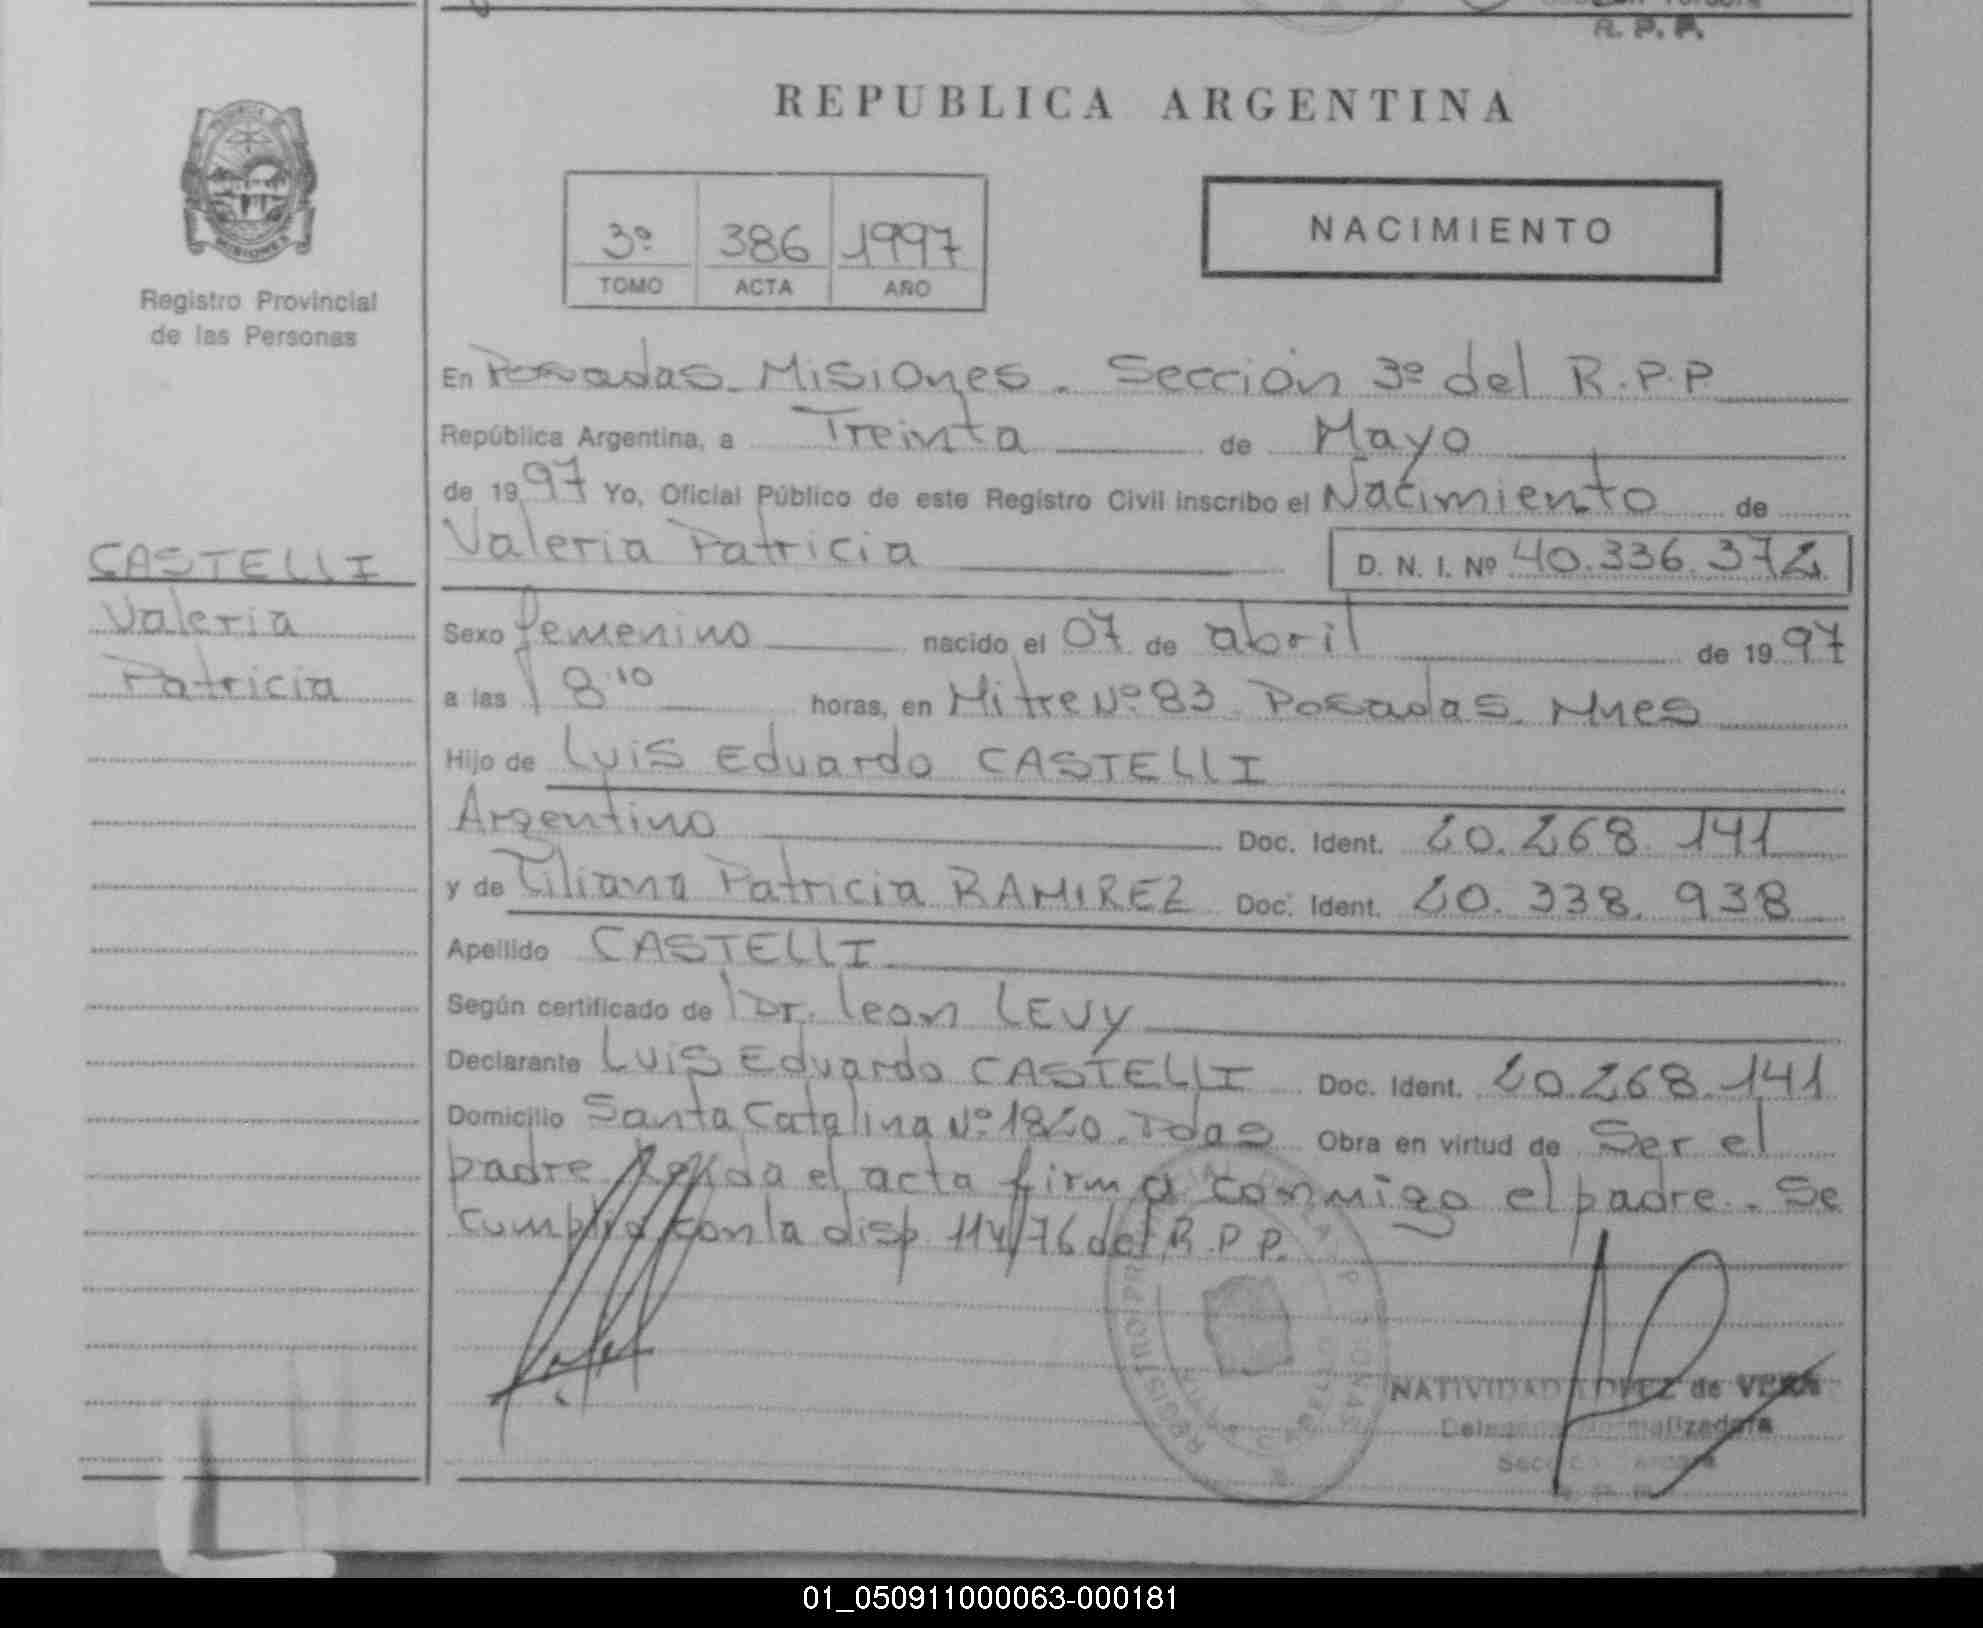 R. P. P.
REPUBLICA ARGENTINA
MISIONES
Registro Provincial
de las Personas
3º 386 1997
TOMO ACTA AÑO
NACIMIENTO
En Posadas - Misiones - Sección 3º del R.P.P
República Argentina, a Treinta de Mayo
de 1997 Yo, Oficial Público de este Registro Civil inscribo el Nacimiento de
Valeria Patricia D. N. I. Nº 40.336.372
CASTELLI
Valeria
Patricia
Sexo femenino nacido el 07 de abril de 1997
a las 18¹⁰ horas, en Mitre Nº 83 Posadas. Mnes
Hijo de Luis Eduardo CASTELLI
Argentino Doc. Ident. 20.268.141
y de Liliana Patricia RAMIREZ Doc. Ident. 20.338.938
Apellido CASTELLI
Según certificado de Dr. Leon LEVY
Declarante Luis Eduardo CASTELLI Doc. Ident. 20.268.141
Domicilio Santa Catalina Nº 1820. Pdas Obra en virtud de Ser el
padre leída el acta firma conmigo el padre. Se
cumplió con la disp. 114/76 del R.P.P.
NATIVIDAD LOPEZ de VERA
Delegada Normalizadora
01_050911000063-000181